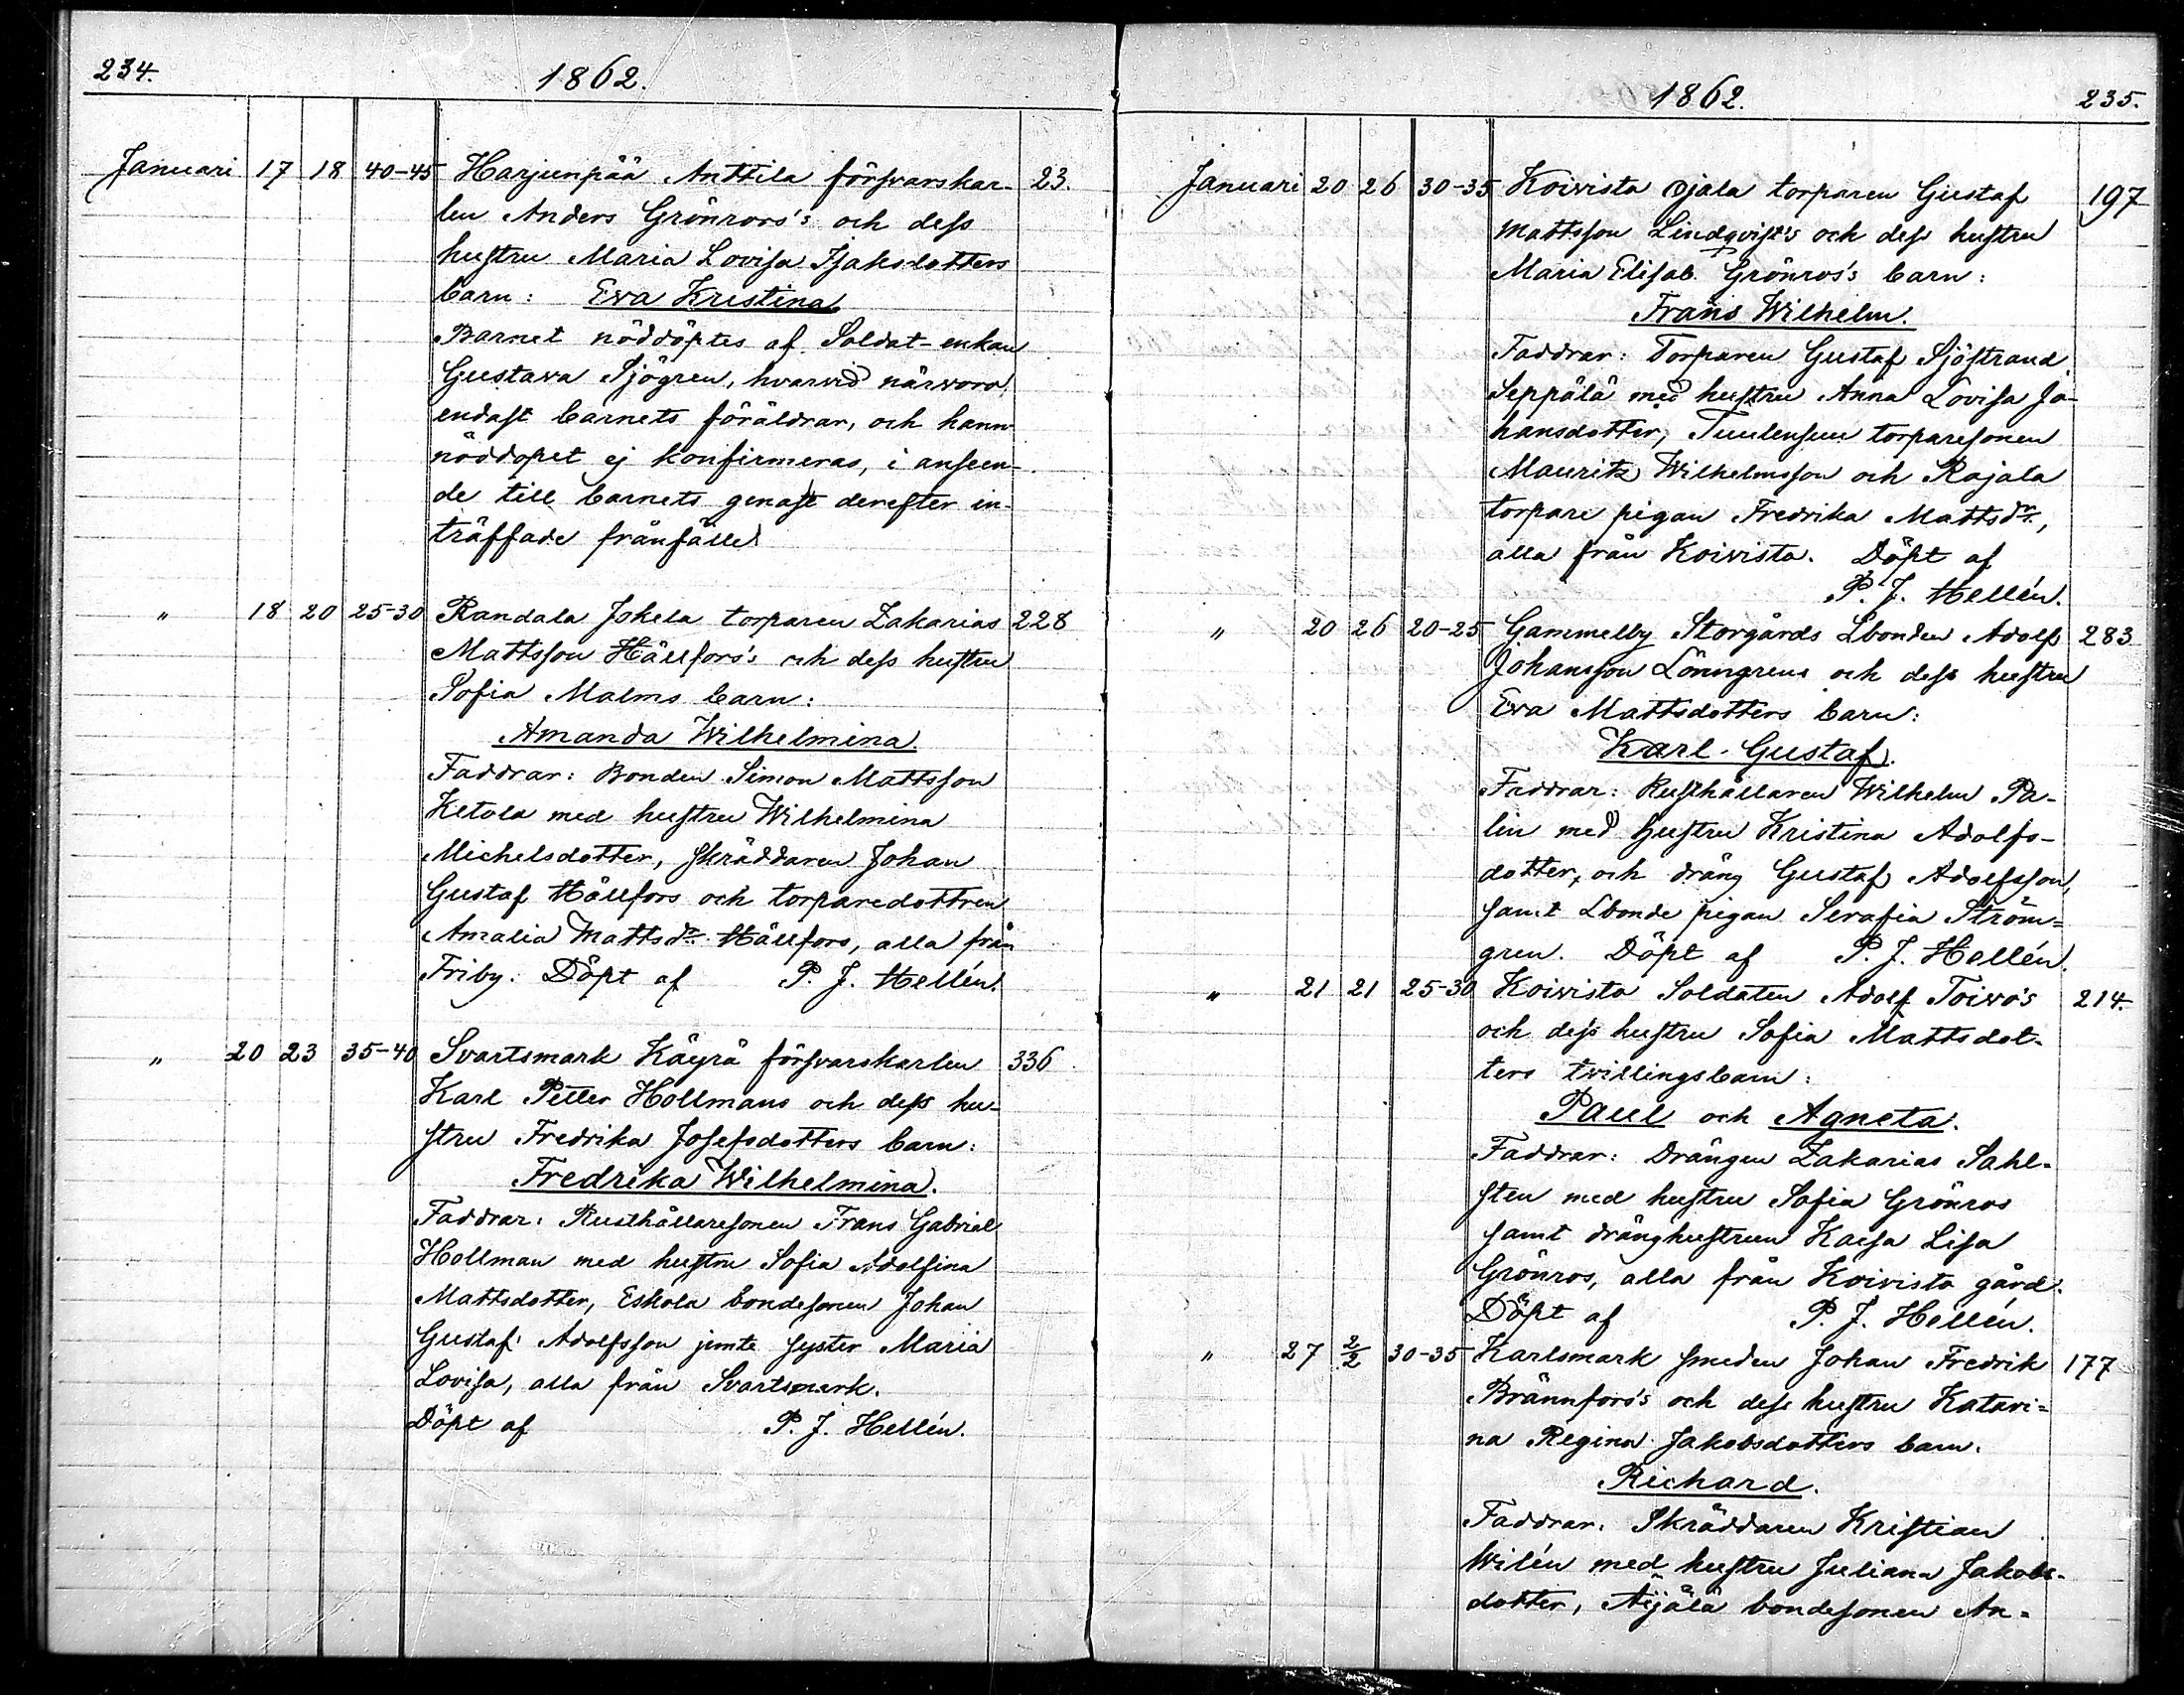 234.
1862.
Januari 17 18 40-45 Harjunpää Anttila försvarskar- 23.
len Anders Grönroos's och dess
hustru Maria Lovisa Isaksdotters
barn: Eva Kristina
Barnet nöddöptes af Soldat-enkan
Gustava Sjögren, hvarvid närvoro
endast barnets föräldrar, och hann
nöddopet ej konfirmeras, i anseen-
de till barnets genast derefter in-
träffade frånfälle
" 18 20 25-30 Randala Jokela torparen Zakarias 228
Mattsson Hällfors's och dess hustru
Sofia Malms barn:
Amanda Wilhelmina.
Faddrar: Bonden Simon Mattsson
Ketola med hustru Wilhelmina
Michelsdotter, skräddaren Johan
Gustaf Hällfors och torparedottren
Amalia Mattsdr. Hällfors, alla från
Friby. Döpt af P. J. Hellén.
" 20 23 35-40 Svartsmark Käyrä försvarskarlen 336
Karl Petter Hollmans och dess hu-
stru Fredrika Josefsdotters barn:
Fredrika Wilhelmina.
Faddrar: Rusthållaresonen Frans Gabriel
Hollman med hustru Sofia Adolfina
Mattsdotter, Eskola bondesonen Johan
Gustaf Adolfsson jemte syster Maria
Lovisa, alla från Svartsmark.
Döpt af P. J. Hellén.
1862.
235.
Januari 20 26 30-35 Koivisto Ojala torparen Gustaf 197
Mattsson Lindqvist's och dess hustru
Maria Elisab. Grönros's barn:
Frans Wilhelm.
Faddrar: Torparen Gustaf Sjöstrand
Seppälä med hustru Anna Lovisa Jo-
hansdotter, Tuulensuu torparesonen
Mauritz Wilhelmsson och Rajala
torpare pigan Fredrika Mattsdr.,
alla från Koivisto. Döpt af
P. J. Hellén.
" 20 26 20-25 Gammelby Storgårds Lbonden Adolf 283
Johansson Lönngrens och dess hustru
Eva Mattsdotters barn:
Karl Gustaf.
Faddrar: Rusthållaren Wilhelm Pa-
lin med hustru Kristina Adolfs-
dotter, och dräng Gustaf Adolfsson,
samt Lbonde pigan Serafia Ström=
gren. Döpt af P. J. Hellén.
" 21 21 25-30 Koivisto Soldaten Adolf Toivo's 214.
och dess hustru Sofia Mattsdot-
ters tvillingsbarn:
Paul och Agneta.
Faddrar: Drängen Zakarias Sahl-
sten med hustru Sofia Grönros
samt dränghustrun Kaisa Lisa
Grönros, alla från Koivisto gård.
Döpt af P. J. Hellén.
" 27 2/2 30-35 Karlsmark smeden Johan Fredrik 177
Brännfors's och dess hustru Katari=
na Regina Jakobsdotters barn.
Richard.
Faddrar: Skräddaren Kristian
Wilén med hustru Juliana Jakobs-
dotter, Äijälä bondesonen An=